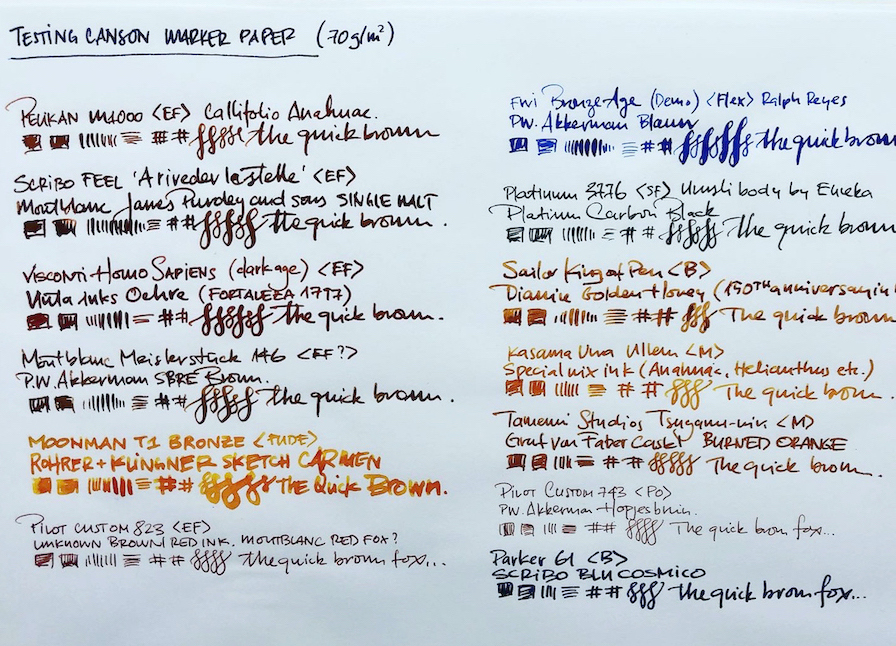 TESTING CANSON MARKER PAPER (70g/m²)
PELIKAN M1000 <EF> Callifolio Anahuac.
the quick brown
SCRIBO FEEL 'A riveder le stelle' <EF>
Montblanc James Purdey and sons SINGLE MALT
the quick brown.
VISCONTI Homo SAPIENS (dark age) <EF>
Vinta inks Ochre (FORTALEZA 1797)
the quick brown.
Montblanc Meisterstück 146 <EF?>
P.W. Akkerman SBRE Brown.
the quick brown.
MOONMAN T1 BRONZE <FUDE>
ROHRER + KLINGNER SKETCH CARMEN
THE QUICK BROWN.
PILOT CUSTOM 823 <EF>
UNKNOWN BROWN/RED INK. MONTBLANC RED FOX?
the quick brown fox...
FWI Bronze Age (Demo) <Flex> Ralph Reyes
P.W. Akkerman Blauw
the quick brown
Platinum 3776 <SF> Urushi body by Eureka
Platinum Carbon Black
the quick brown
Sailor King of Pen <B>
Diamine Golden Honey (150TH anniversary in
The quick brown
Kasama Una Ultem <M>
Special mix ink (Anahuac, Helianthus etc.)
The quick brown.
Tamenui Studios Tsugaru-nuri <M>
Graf von Faber Castell BURNED ORANGE
The quick brown.
PILOT CUSTOM 743 <PO>
P.W. Akkerman Hopjesbruin.
The quick brown fox...
Parker 61 <B>
SCRIBO BLU COSMICO
the quick brown fox...